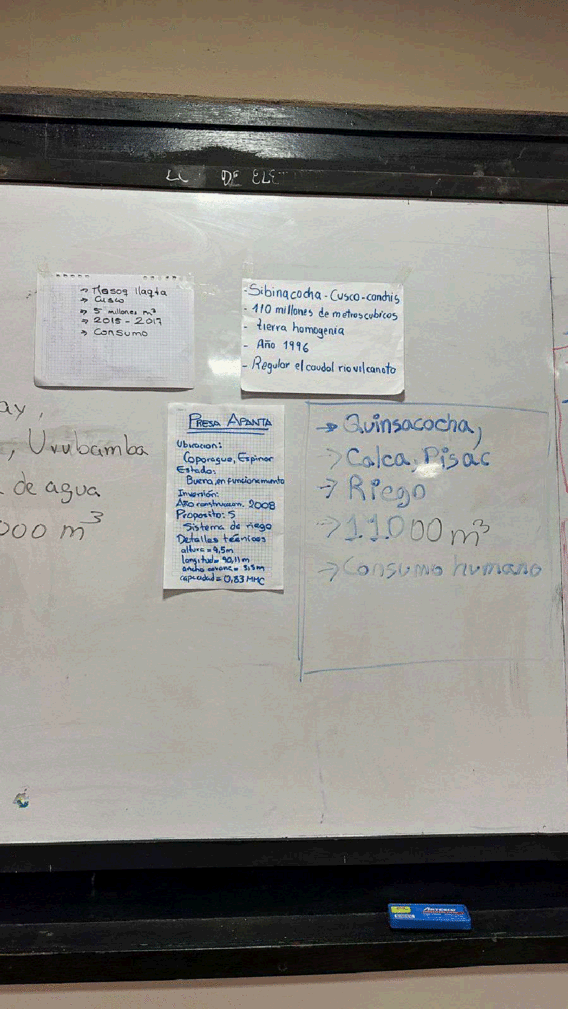 DE ELE
→ Mosoq llaqta
→ Cusco
→ 5 millones m³
→ 2015 - 2017
→ Consumo
- Sibinacocha - Cusco - canchis
- 110 millones de metros cubicos
- tierra homogenia
- Año 1996
- Regular el caudal rio vilcanoto
ay,
, Urubamba
de agua
000 m³
PRESA APANTA
Ubicacion:
Coporaque, Espinar
Estado:
Buena, en funcionamento
Inversión:
Año construccion. 2008
Proposito: S
Sistema de riego
Detalles técnicos
altura = 9,5m
longitud = 90,11m
ancho corona = 3,5m
capacidad = 0,83 MMC
→ Quinsacocha,
→ Calca, Pisac
→ Riego
→ 11.000 m³
→ Consumo humano